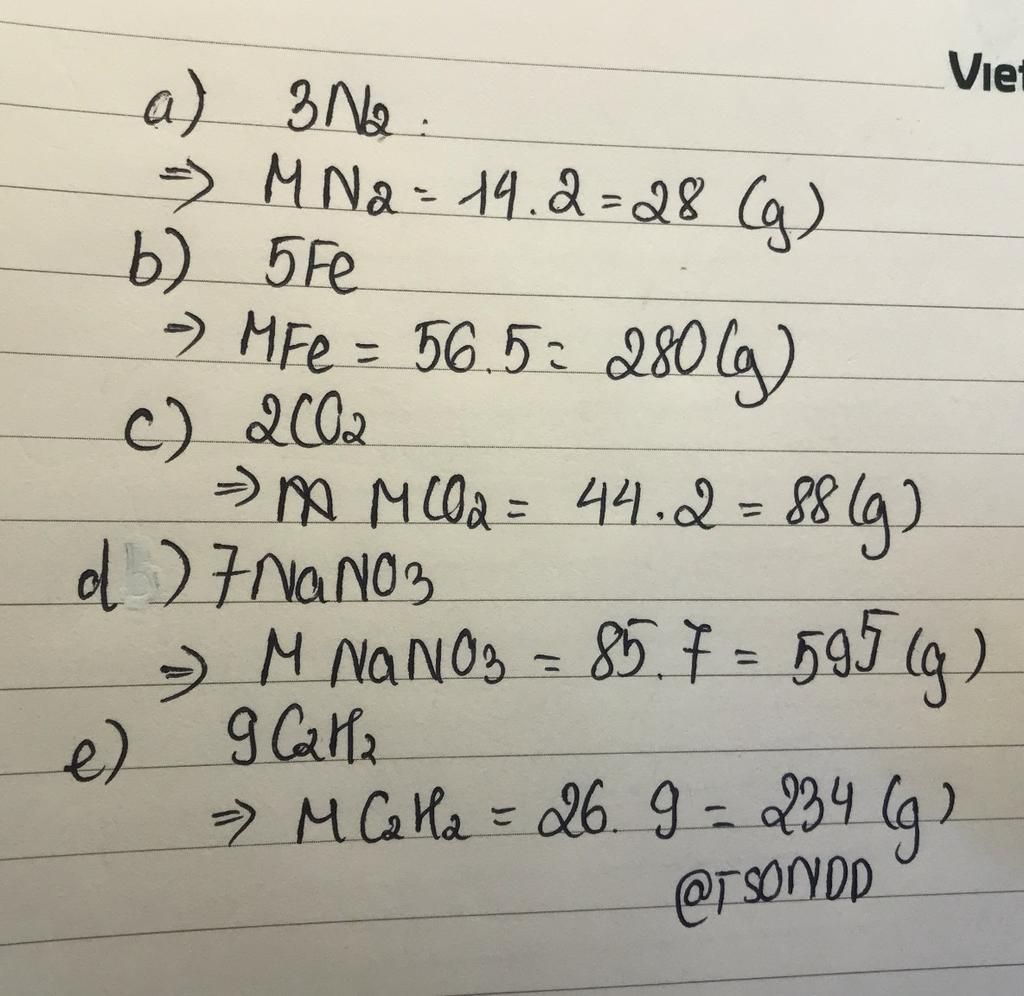 Viet
a) 3N2 :
=> MN2 = 14.2 = 28 (g)
b) 5Fe
=> MFe = 56.5 = 280 (g)
c) 2CO2
=> MCO2 = 44.2 = 88 (g)
d) 7NaNO3
=> M NaNO3 = 85.7 = 595 (g)
e) 9C2H2
=> MC2H2 = 26.9 = 234 (g)
@TSONDD